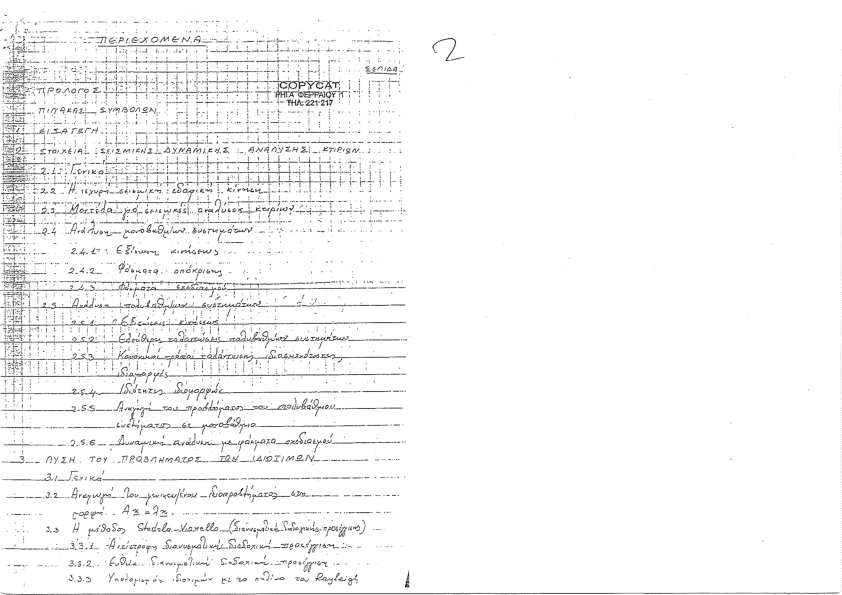 ΠΕΡΙΕΧΟΜΕΝΑ
2
ΣΕΛΙΔΑ
ΠΡΟΛΟΓΟΣ
COPYCAT
ΡΗΓΑ ΦΕΡΡΑΙΟΥ 1
ΤΗΛ: 221-217
ΠΙΝΑΚΑΣ ΣΥΜΒΟΛΩΝ
1 ΕΙΣΑΓΩΓΗ
2 ΣΤΟΙΧΕΙΑ ΣΕΙΣΜΙΚΗΣ ΔΥΝΑΜΙΚΗΣ ΑΝΑΛΥΣΗΣ ΚΤΙΡΙΩΝ
2.1 Γενικά
2.2 Η ισχυρή σεισμική εδαφική κίνηση
2.3 Μοντέλα για σεισμικές αναλύσεις κτιρίων
2.4 Ανάλυση μονοβαθμίων συστημάτων
2.4.1 Εξίσωση κινήσεως
2.4.2 Φάσματα απόκρισης
2.4.3 Φάσματα σχεδιασμού
2.5 Ανάλυση πολυβαθμίων συστημάτων
2.5.1 Εξισώσεις κινήσεως
2.5.2 Ελεύθερες ταλαντώσεις πολυβαθμίων συστημάτων
2.5.3 Κανονικοί τρόποι ταλάντωσης, ιδιοσυχνότητες,
ιδιομορφές
2.5.4 Ιδιότητες ιδιομορφών
2.5.5 Αναγωγή του προβλήματος του πολυβάθμιου
συστήματος σε μονοβάθμια
2.5.6 Δυναμική ανάλυση με φάσματα σχεδιασμού
3 ΛΥΣΗ ΤΟΥ ΠΡΟΒΛΗΜΑΤΟΣ ΤΩΝ ΙΔΙΟΤΙΜΩΝ
3.1 Γενικά
3.2 Αναγωγή του γενικευμένου ιδιοπροβλήματος στη
μορφή Ax = λx
3.3 Η μέθοδος Stodola-Vianello (διανυσματικής διαδοχικής προσέγγισης)
3.3.1 Αντίστροφη διανυσματική διαδοχική προσέγγιση
3.3.2 Ευθεία διανυσματική διαδοχική προσέγγιση
3.3.3 Υπολογισμός ιδιοτιμών με το πηλίκο του Rayleigh